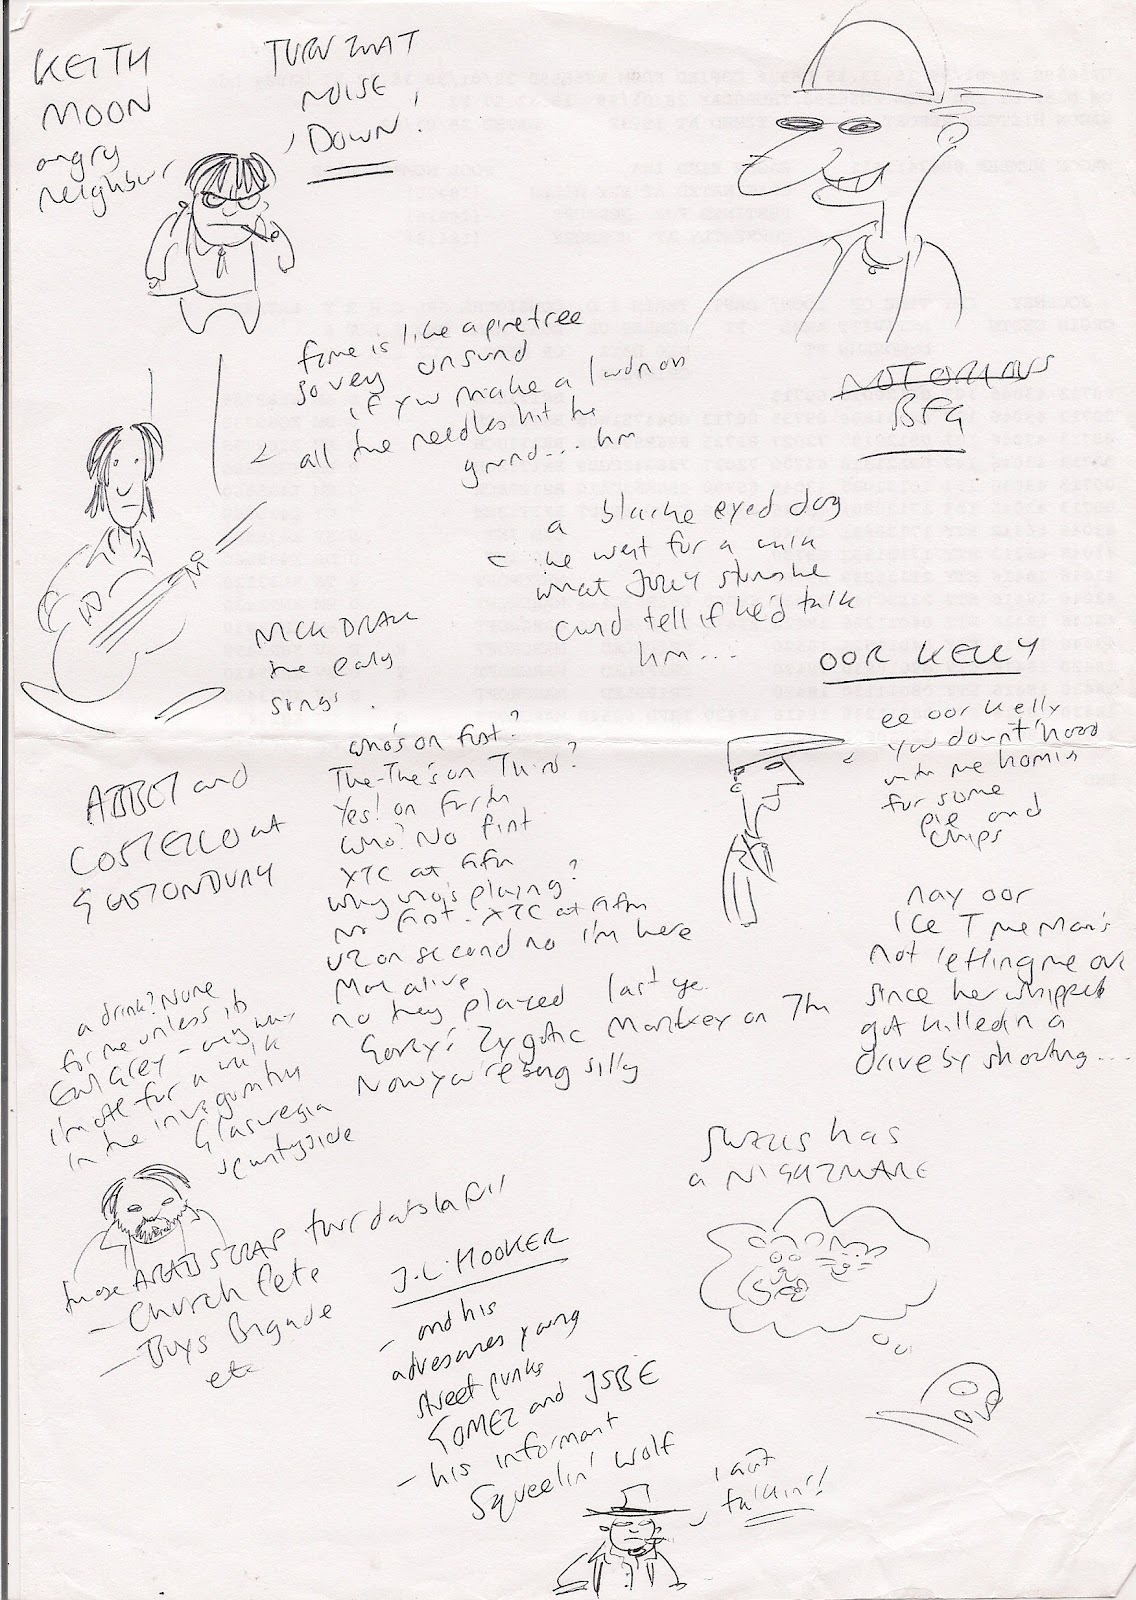 KEITH
MOON
angry
neighbur
TURN THAT
NOISE
DOWN!
NOTORIOUS
BFG
fame is like a pine tree
so very unsund
if you make a
all the needles hit the
grund... hm
a blacke eyed dog
he went for a walk
what stories he
cud tell if he'd talk
hm...
NICK DRAKE
the early
songs.
OOR KELLY
ee oor kelly
you dount 'hood
with me homis
for some
pie and
chips
nay oor
ICE T me Mam's
not letting me out
since her whippet
got killed in a
drive by shooting...
ABBOT and
COSTELLO at
GLASTONDURY
who's on first?
The-The's on Third?
Yes! on Furth
who? No first
XTC at fifth
why who's playing?
no first. XTC at fifth
U2 on second no I'm here
Man alive
no they played last ye.
Gorky's Zygotic Monkey on 7th
Now you're being silly
a drink? None
for me unless its
Earl Grey - anyway
I'm off for a walk
in the invigorating
Glaswegia
scuntryside
those ARAB STRAP tour dates in full
- Church fete
- Buys Brigade
etc
J.L. HOOKER
- and his
adversaries young
street punks
GOMEZ and JSBE
- his informant
Squeelin' Wolf
I aint
talkin'!
has
a NIGHTMARE